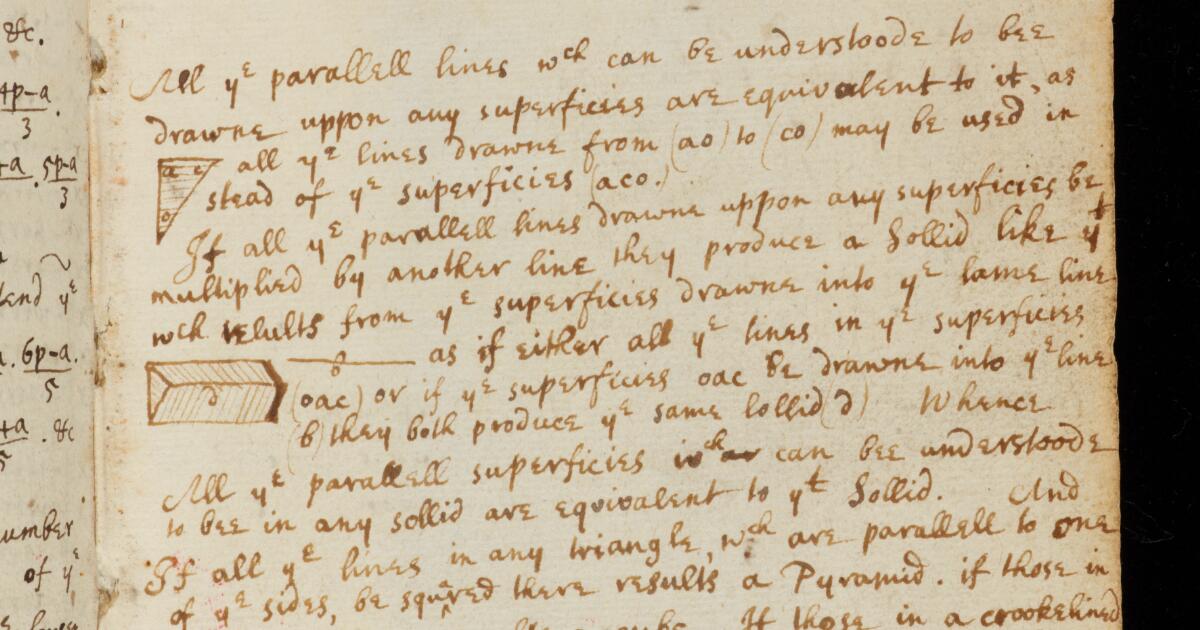 &c.
4p-a
3
.
+a . 5p-a
3
tend yᵉ
. 6p-a.
5
+a . &c
5
umber
of yᵉ
All yᵉ parallell lines wᶜʰ can be understoode to bee
drawne uppon any superficies are equivalent to it, as
all yᵉ lines drawne from (ao) to (co) may be used in
stead of yᵉ superficies (aco.)
a c
o
If all yᵉ parallell lines drawne uppon any superficies be
multiplied by another line they produce a Sollid like yᵗ
wch results from yᵉ superficies drawne into yᵉ same line
b as if either all yᵉ lines in yᵉ superficies
d (oac) or if yᵉ superficies oac be drawne into yᵉ line
(b) they both produce yᵉ same sollid (d) Whence
All yᵉ parallell superficies wᶜʰ can bee understoode
to bee in any sollid are equivalent to yᵗ Sollid. And
If all yᵉ lines in any triangle, wᶜʰ are parallell to one
of yᵉ sides, be squared there results a Pyramid. if those in
If those in a crookelined